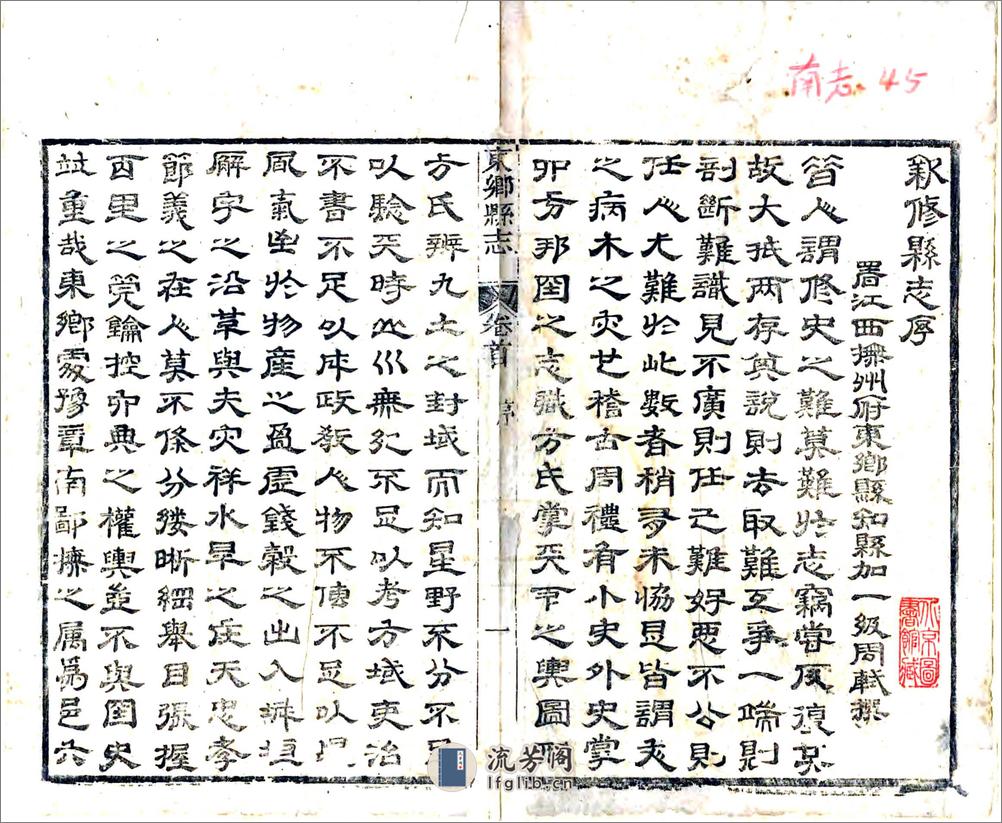 南志 45
新修縣志序
署江西撫州府東鄉縣知縣加一級周軾撰
昔人謂修史之難莫難於志竊嘗反復其
故大抵兩存異說則去取難互爭一端則
剖斷難識見不廣則任己難好惡不公則
任人尤難於此數者稍有未協且皆謂
之病木之灾也稽古周禮有小史外史掌
方邦國之志職方氏掌天下之輿圖
東鄉縣志 卷首 序 一
方氏辨九土之封域而知星野不分不足
以驗天時山川無紀不足以考方域吏治
不書不足以成政教人物不傳不足以
風氣於物産之盈虛錢穀之出入城垣
廨宇之沿革與夫灾祥水旱之在天忠孝
節義之在人莫不條分縷晰綱舉目張握
百里之筦鑰控六典之權輿並不與國史
並重哉東鄉處豫章南鄙撫之属爲邑六
流芳阁
lfglib.cn